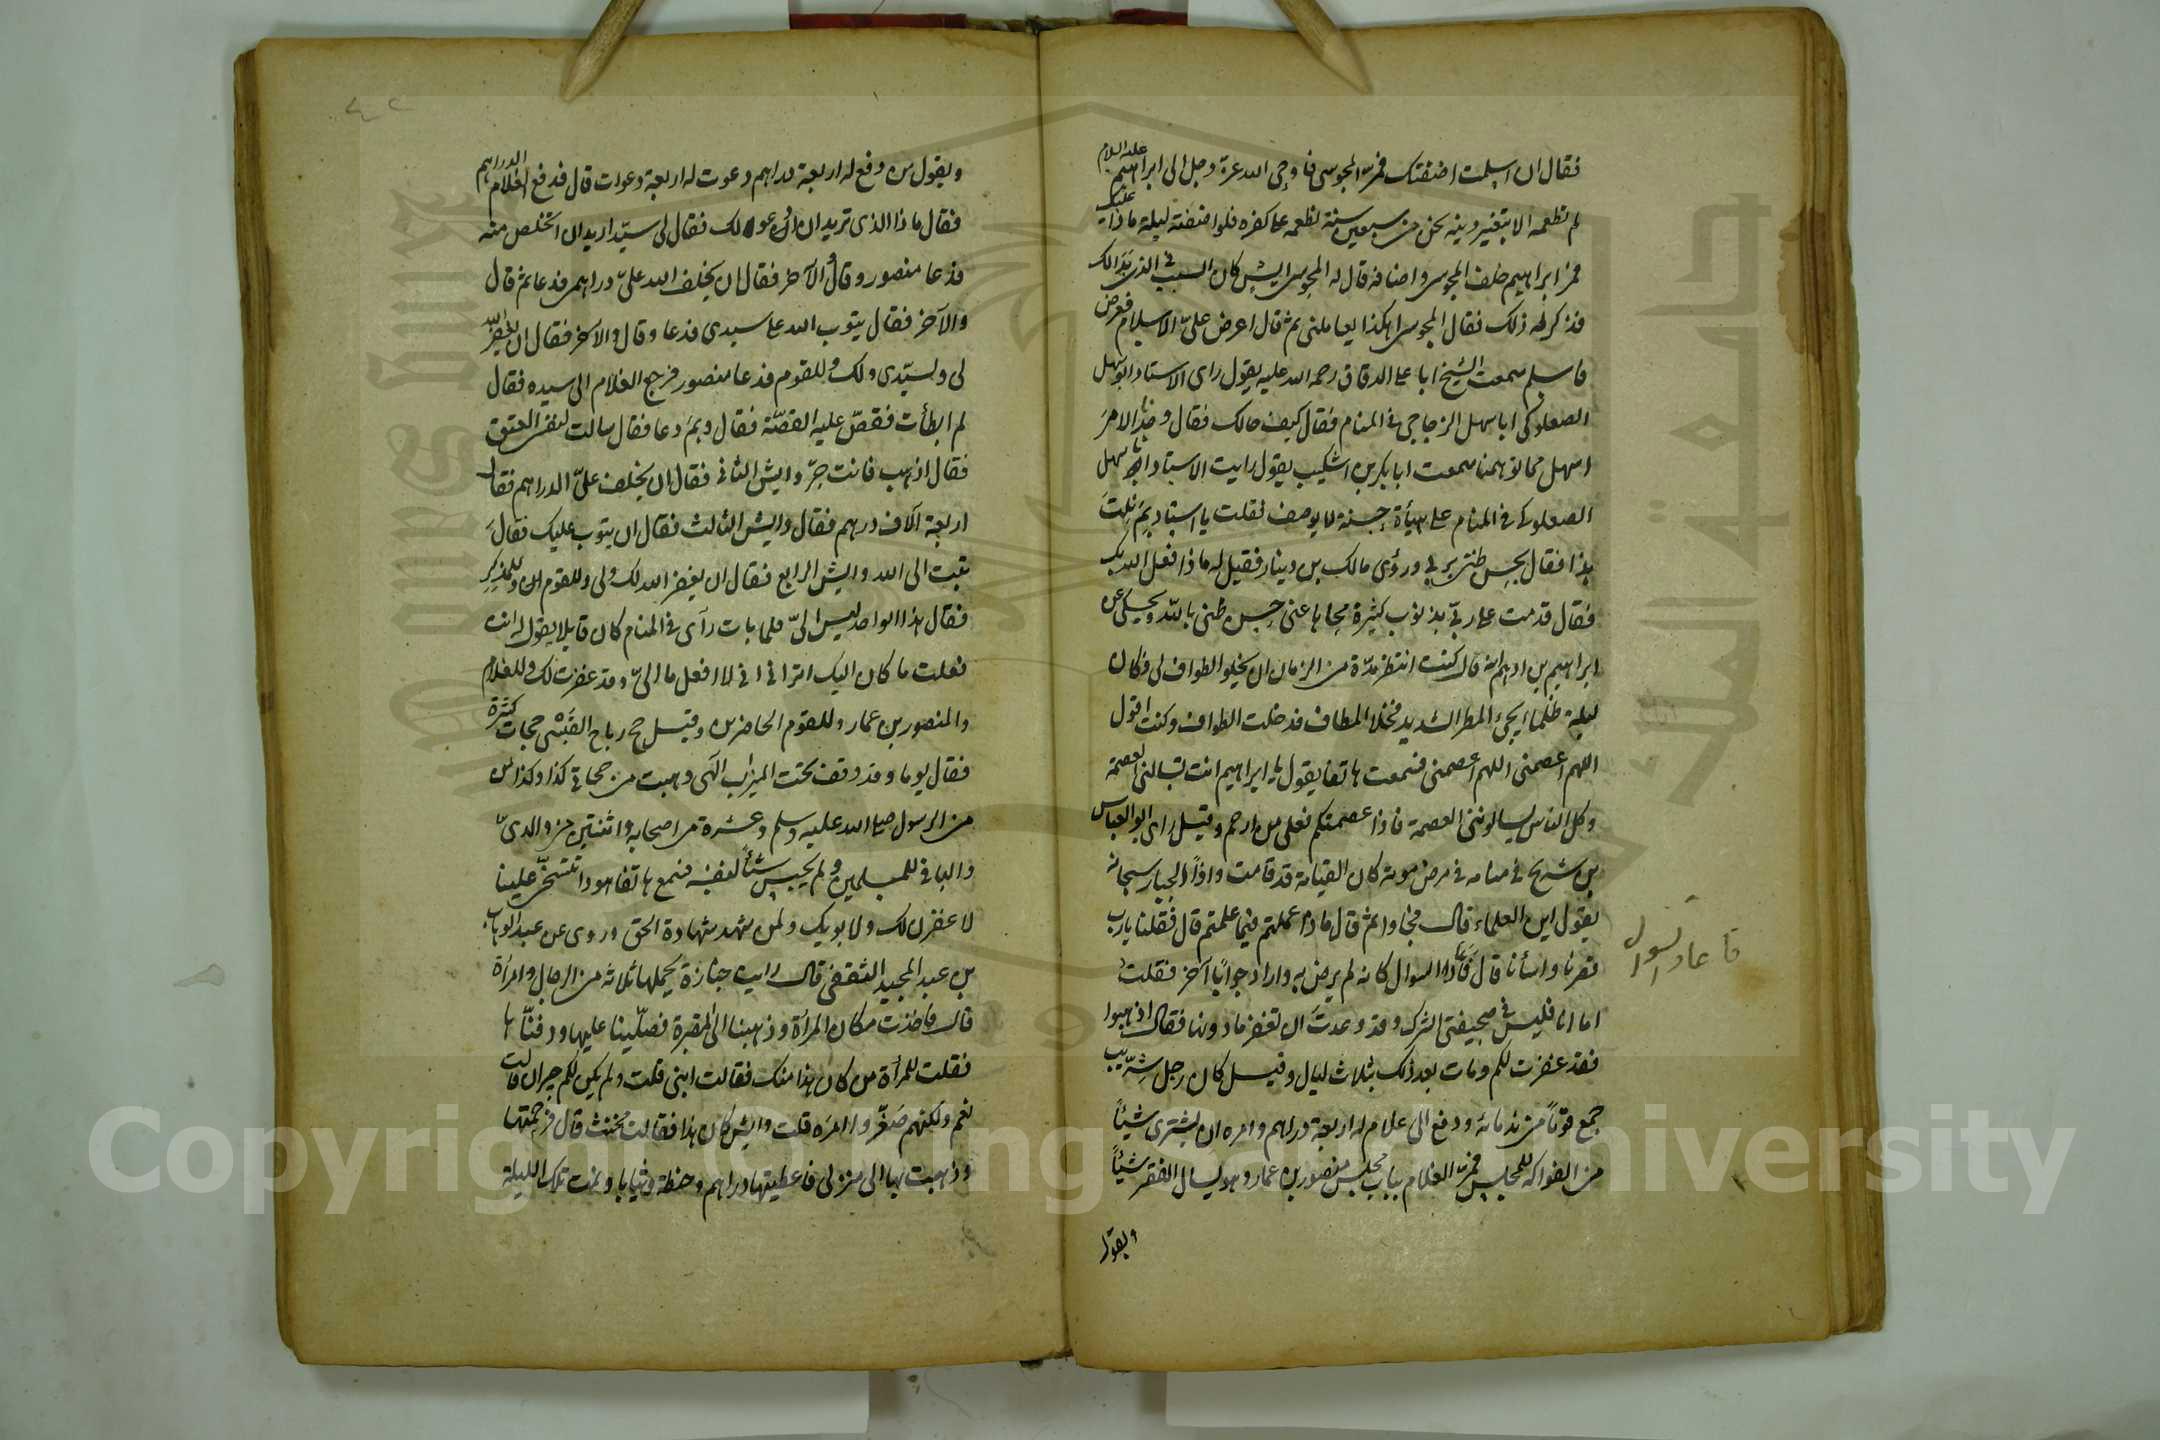 فقال ان اسلمت اضفتك فمر المجوسى فاوحى الله عزة وجل الى ابراهيم عليه السلام
لم تطعمه الا بتغيير دينه نحن من سبعين سنة نطعمه على كفره فلو اضفته ليلة ماذا عليك
فمر ابراهيم خلف المجوسى واضافه قال له المجوسى ايش كان السبب فى الذى بدا لك
فذكر له ذلك فقال المجوسى اهكذا يعاملنى ثم قال اعرض علىّ الاسلام فعرض
فاسلم سمعت الشيخ ابا على الدقاق رحمه الله عليه يقول راى الاستاد ابو سهل
الصعلوكى ابا سهل الزجاجى فى المنام فقال كيف حالك فقال وجدنا الامر
اسهل مما توهمنا سمعت ابا بكر بن اشكيب يقول رايت الاستاد ابا سهل
الصعلوكى فى المنام على هيأة حسنة لا يوصف فقلت يا استاد بم نلت
هذا فقال بحسن ظنى بربى ورؤى مالك بن دينار فقيل له ماذا فعل الله بك
فقال قدمت على ربى بذنوب كثيرة محاها عنى حسن ظنى بالله ويحكى عن
ابراهيم بن ادهم انه قال كنت انتظر مدّة من الزمان ان يخلو الطواف لى فكان
ليلة ظلما يجئ المطر الشديد فخلا المطاف فدخلت الطواف وكنت اقول
اللهم اعصمنى اللهم اعصمنى فسمعت هاتفا يقول يا ابراهيم انت تسالنى العصمة
وكل الناس يسالوننى العصمة فاذا عصمتكم فعلى من ارحم وقيل راى ابو العباس
بن شريح فى منامه فى مرض موته كان القيامة قد قامت واذا الجبار سبحانه
يقول اين العلماء قال فجاوا ثم قال ماذا عملتم فيما علمتم قال فقلنا يا رب
قصرنا واسأنا قال فاعاد السوال كانه لم يرض به واراد جوابًا آخر فقلت
فاعاد السوال
اما انا فليس فى صحيفتى الشرك وقد وعدت ان تغفر ما دونه فقال اذهبوا
فقد غفرت لكم ومات بعد ذلك بثلاث ليال وقيل كان رجل شرّيب
جمع قومًا من ندمائه ودفع الى غلام له اربعة دراهم وامره ان يشترى شيئًا
من الفواكه للمجلس فمرّ الغلام بباب مجلس منصور بن عمار وهو يسال الفقير شيئًا
ويقول
ويقول من دفع له اربعة دراهم دعوت له اربعة دعوات قال فدفع الغلام الدراهم
فقال ماذا الذى تريد ان ادعو لك فقال لى سيّد اريد ان اتخلص منه
فدعا منصور وقال الآخر فقال ان يخلف الله علىّ دراهمى فدعا ثم قال
والآخر فقال يتوب الله على سيدى فدعا وقال والآخر فقال ان يغفر الله
لى ولسيّدى ولك وللقوم فدعا منصور فرجع الغلام الى سيده فقال
لم ابطأت فقصّ عليه القصّة فقال وبم دعا فقال سالت لنفسى العتق
فقال اذهب فانت حرّ وايش الثانى فقال ان يخلف علىّ الدراهم فقال
اربعة آلاف درهم فقال وايش الثالث فقال ان يتوب عليك فقال
تبت الى الله وايش الرابع فقال ان يغفر الله لك ولى وللقوم وللمذكر
فقال هذا الواحد ليس الىّ فلما بات رآى فى المنام كان قايلا يقول له انت
فعلت ما كان اليك اترانى انى لا افعل ما الىّ وقد غفرت لك وللغلام
والمنصور بن عمار وللقوم الحاضرين وقيل حج رباح القيسى حجات كثيرة
فقال يوما وقد وقف تحت الميزاب الهى وهبت من حجاتى كذا وكذا
من الرسول صلى الله عليه وسلم وعشرة من اصحابه واثنتين من والدىّ
والباقى للمسلمين ولم يحبس شئاً لنفسه فسمع هاتفا هو ذا تتسخّى علينا
لاغفرن لك ولابويك ولمن شهد شهادة الحق وروى عن عبد الوهاب
بن عبد المجيد الثقفى قال رايت جنازة يحملها ثلاثه من الرجال وامرأة
قال فاخذت مكان المرأة وذهبنا الى المقبرة فصلّينا عليها ودفنّاها
فقلت للمرأة من كان هذا منك فقالت ابنى قلت ولم يكن لكم جيران قالت
نعم ولكنهم صغّروا امره قلت وايش كان هذا فقالت مخنث قال فرحمتها
وذهبت بها الى منزلى فاعطيتها دراهم وحنطة وثيابا ونمت تلك الليلة
Copyright © King Saud University